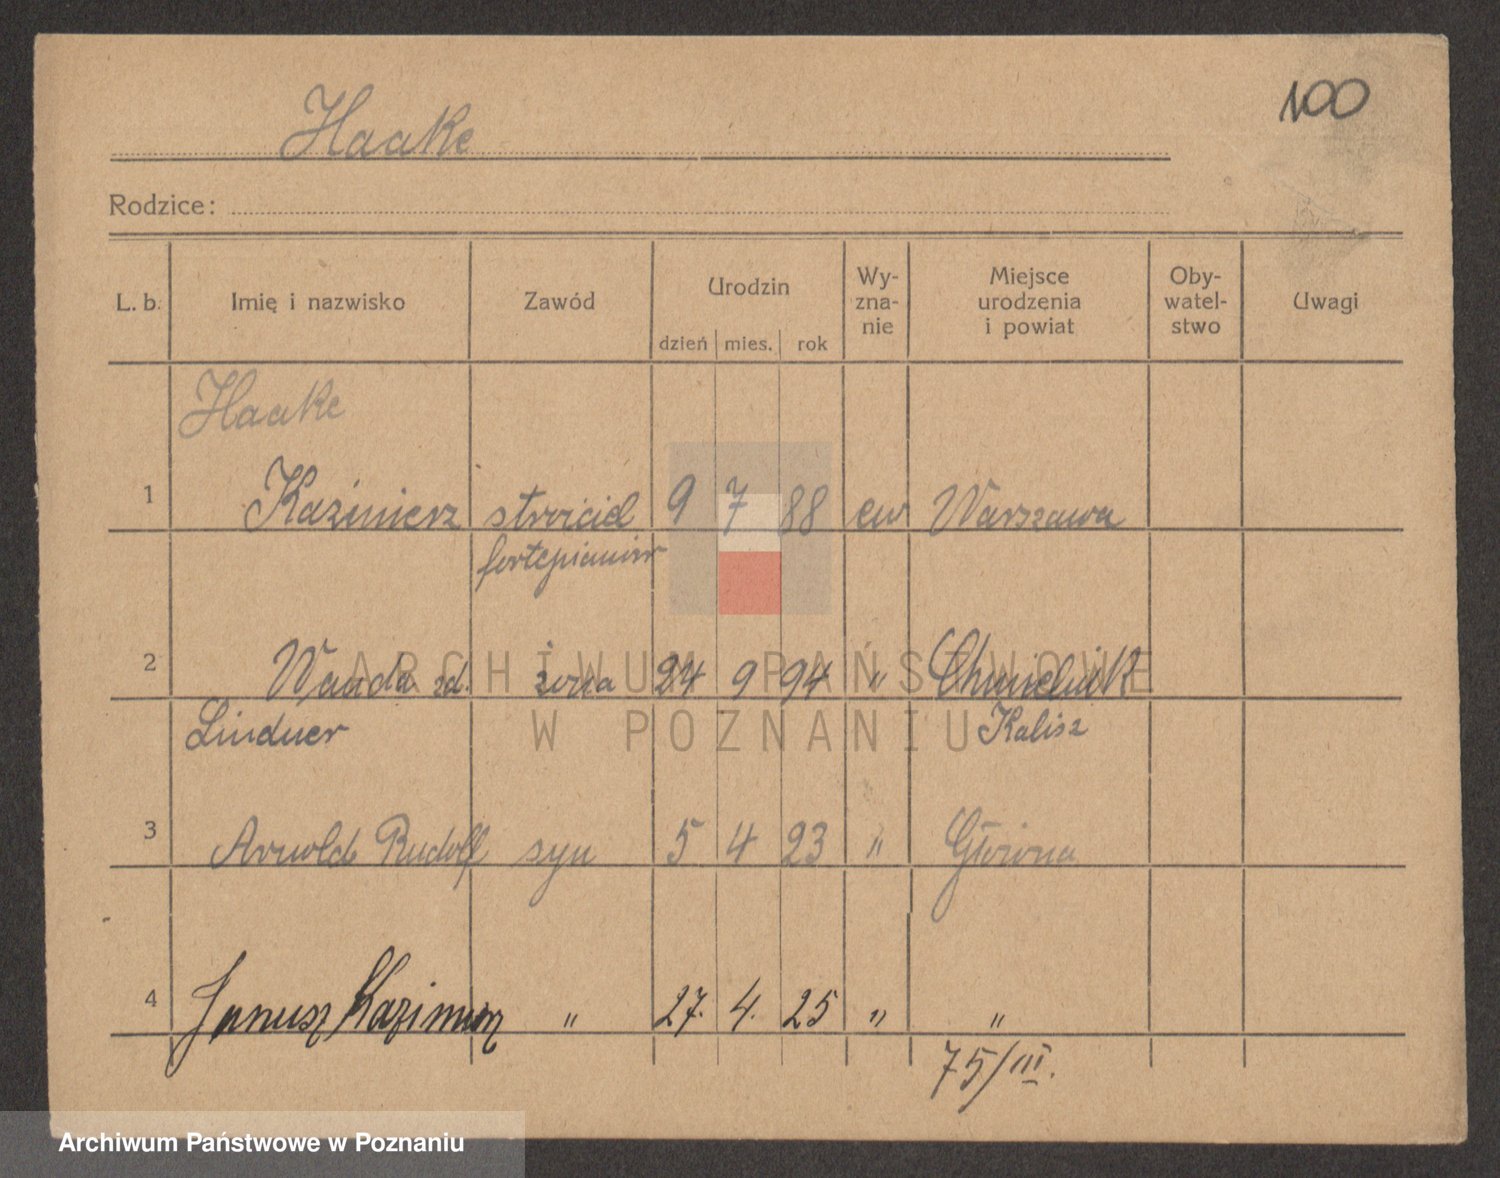 100
Haake
Rodzice:
L. b. Imię i nazwisko Zawód Urodzin dzień mies. rok Wy-zna-nie Miejsce urodzenia i powiat Oby-watel-stwo Uwagi
Haake
1 Kazimierz stroiciel 9 7 88 ew Warszawa
fortepianów
2 Wanda zd. żona 24 9 94 " Chmielnik
Lindner Kalisz
3 Arnold Rudolf syn 5 4 23 " Główna
4 Janusz Kazimierz " 27. 4. 25 " "
75/III.
ARCHIWUM PAŃSTWOWE
W POZNANIU
Archiwum Państwowe w Poznaniu